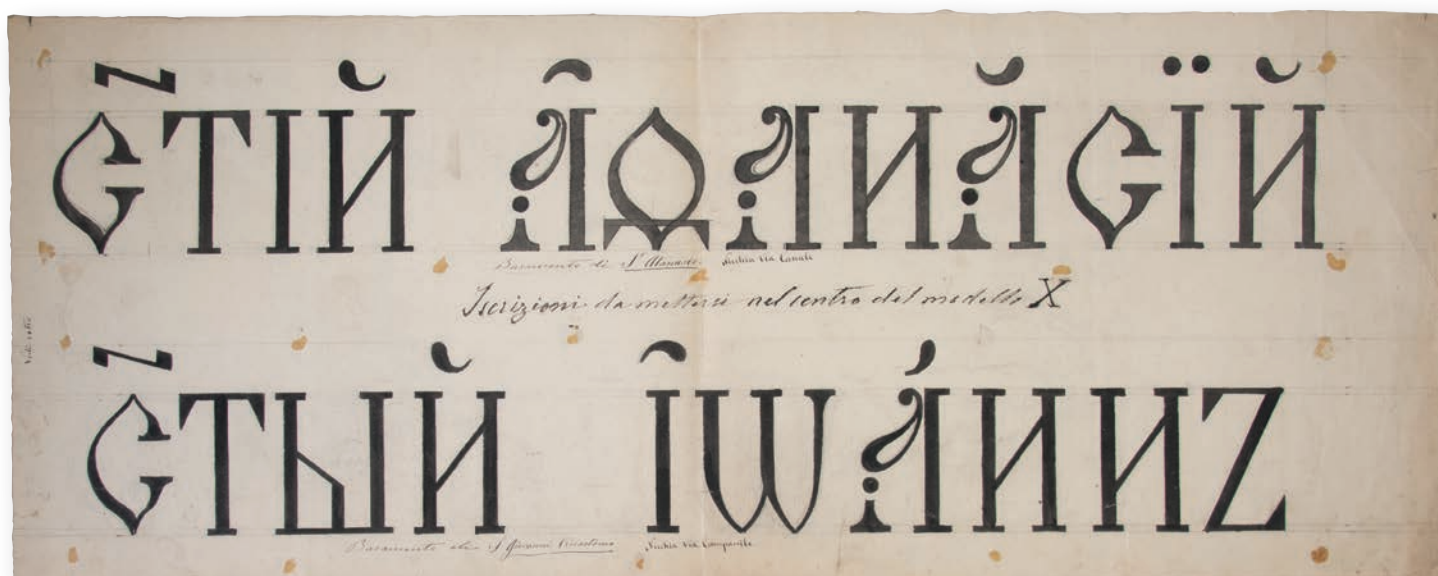 С҃ТІЙ А̑ѲАНӐСЇЙ
Basamento di St Atanasio. Nicchia Via Canale
Iscrizioni da mettersi nel centro del modello X
С҃ТЫЙ І̑Ѡа́ННЪ
Basamento S Giovanni Crisostomo Nicchia Via